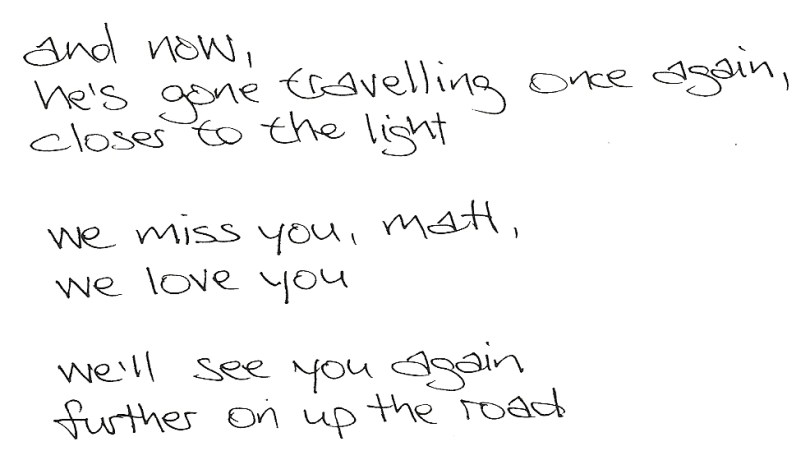 and now,
he's gone travelling once again,
closer to the light
we miss you, matt,
we love you
we'll see you again
further on up the road